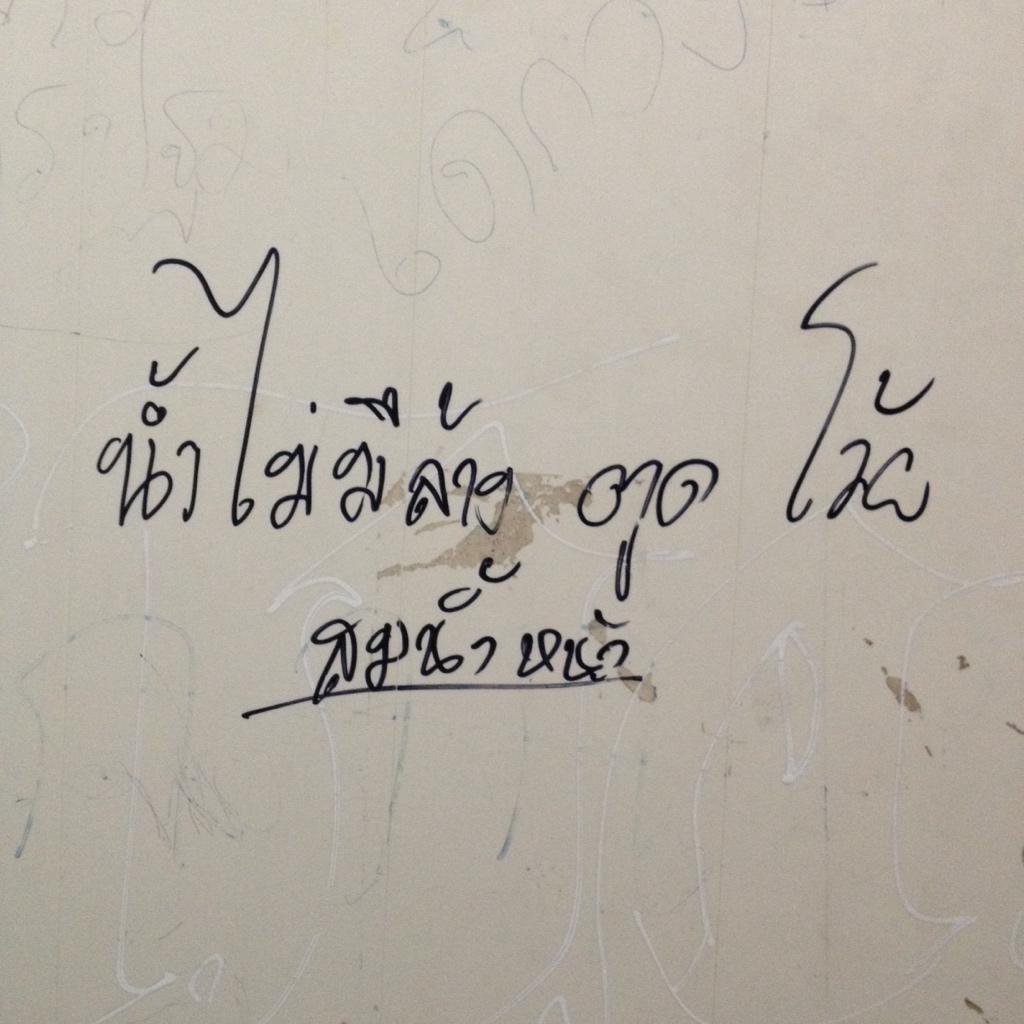 น้ำไม่มีล้าง ตูด โว้ย
สมน้ำหน้า